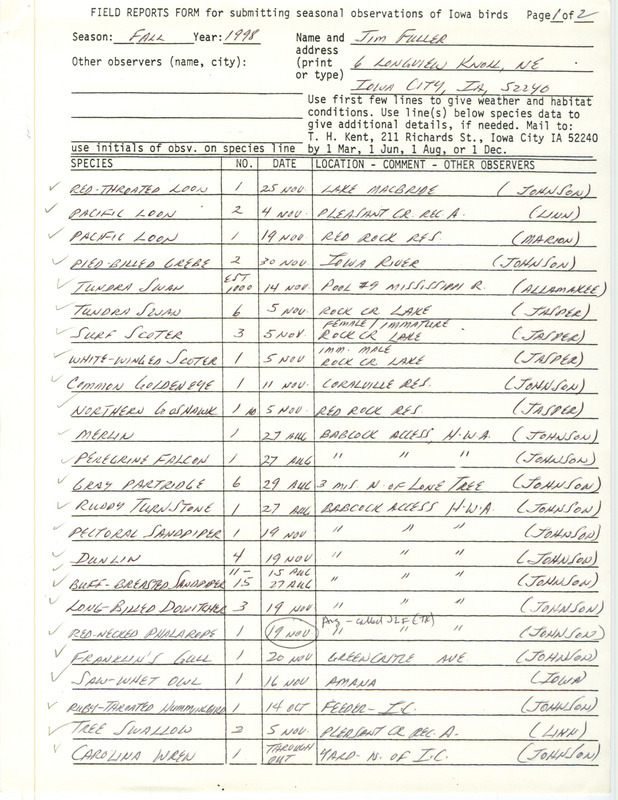 FIELD REPORTS FORM for submitting seasonal observations of Iowa birds Page 1 of 2
Season: FALL Year: 1998 Name and JIM FULLER
address
Other observers (name, city): (print 6 LONGVIEW KNOLL, NE
or type)
IOWA CITY, IA, 52240
Use first few lines to give weather and habitat
conditions. Use line(s) below species data to
give additional details, if needed. Mail to:
T. H. Kent, 211 Richards St., Iowa City IA 52240
use initials of obsv. on species line by 1 Mar, 1 Jun, 1 Aug, or 1 Dec.
SPECIES NO. DATE LOCATION - COMMENT - OTHER OBSERVERS
✓ RED-THROATED LOON 1 25 NOV LAKE MACBRIDE (JOHNSON)
✓ PACIFIC LOON 2 4 NOV. PLEASANT CR. REC. A. (LINN)
✓ PACIFIC LOON 1 19 NOV RED ROCK RES. (MARION)
✓ PIED-BILLED GREBE 2 30 NOV IOWA RIVER (JOHNSON)
✓ TUNDRA SWAN EST 1000 14 NOV. POOL #9 MISSISSIPPI R. (ALLAMAKEE)
✓ TUNDRA SWAN 6 5 NOV. ROCK CR LAKE (JASPER)
FEMALE/IMMATURE
✓ SURF SCOTER 3 5 NOV. ROCK CR LAKE (JASPER)
IMM. MALE
✓ WHITE-WINGED SCOTER 1 5 NOV ROCK CR LAKE (JASPER)
✓ COMMON GOLDENEYE 1 11 NOV. CORALVILLE RES. (JOHNSON)
✓ NORTHERN GOSHAWK 1 5 NOV. RED ROCK RES. (JASPER)
✓ MERLIN 1 27 AUG BABCOCK ACCESS, H.W.A. (JOHNSON)
✓ PEREGRINE FALCON 1 27 AUG " " " (JOHNSON)
✓ GRAY PARTRIDGE 6 29 AUG 3 MIS N. OF LONE TREE (JOHNSON)
✓ RUDDY TURNSTONE 1 27 AUG BABCOCK ACCESS H.W.A. (JOHNSON)
✓ PECTORAL SANDPIPER 1 19 NOV " " " (JOHNSON)
✓ DUNLIN 4 19 NOV " " " (JOHNSON)
11- 15 AUG
✓ BUFF-BREASTED SANDPIPER 15 27 AUG " " " (JOHNSON)
✓ LONG-BILLED DOWITCHER 3 19 NOV " " " (JOHNSON)
Aug - called JLF (TK)
✓ RED-NECKED PHALAROPE 1 19 NOV " " " (JOHNSON)
✓ FRANKLIN'S GULL 1 20 NOV GREENCASTLE AVE. (JOHNSON)
✓ SAW-WHET OWL 1 16 NOV AMANA (IOWA)
✓ RUBY-THROATED HUMMINGBIRD 1 14 OCT FEEDER - I.C. (JOHNSON)
✓ TREE SWALLOW 2 5 NOV. PLEASANT CR REC. A. (LINN)
✓ CAROLINA WREN 1 THROUGH OUT YARD - N. OF I.C. (JOHNSON)